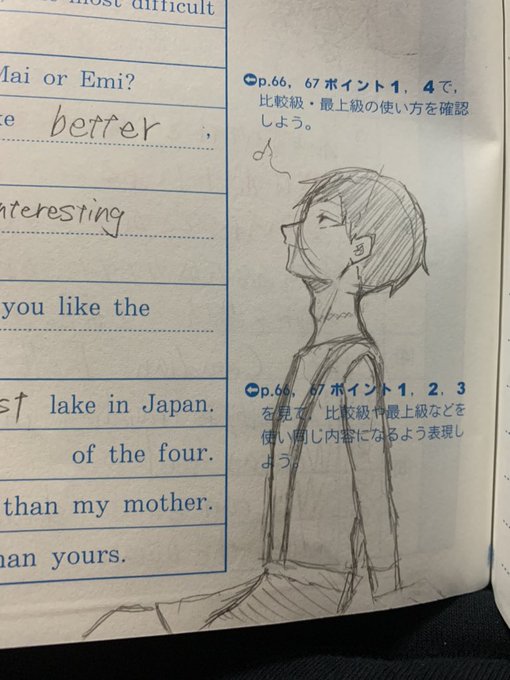 most difficult
Mai or Emi?
better ,
interesting
you like the
lake in Japan.
of the four.
than my mother.
yours.
p.66, 67 ポイント1, 4で,
比較級・最上級の使い方を確認
しよう。
p.66, 67 ポイント1, 2, 3
を見て, 比較級や最上級などを
使い同じ内容になるよう表現し
よう。